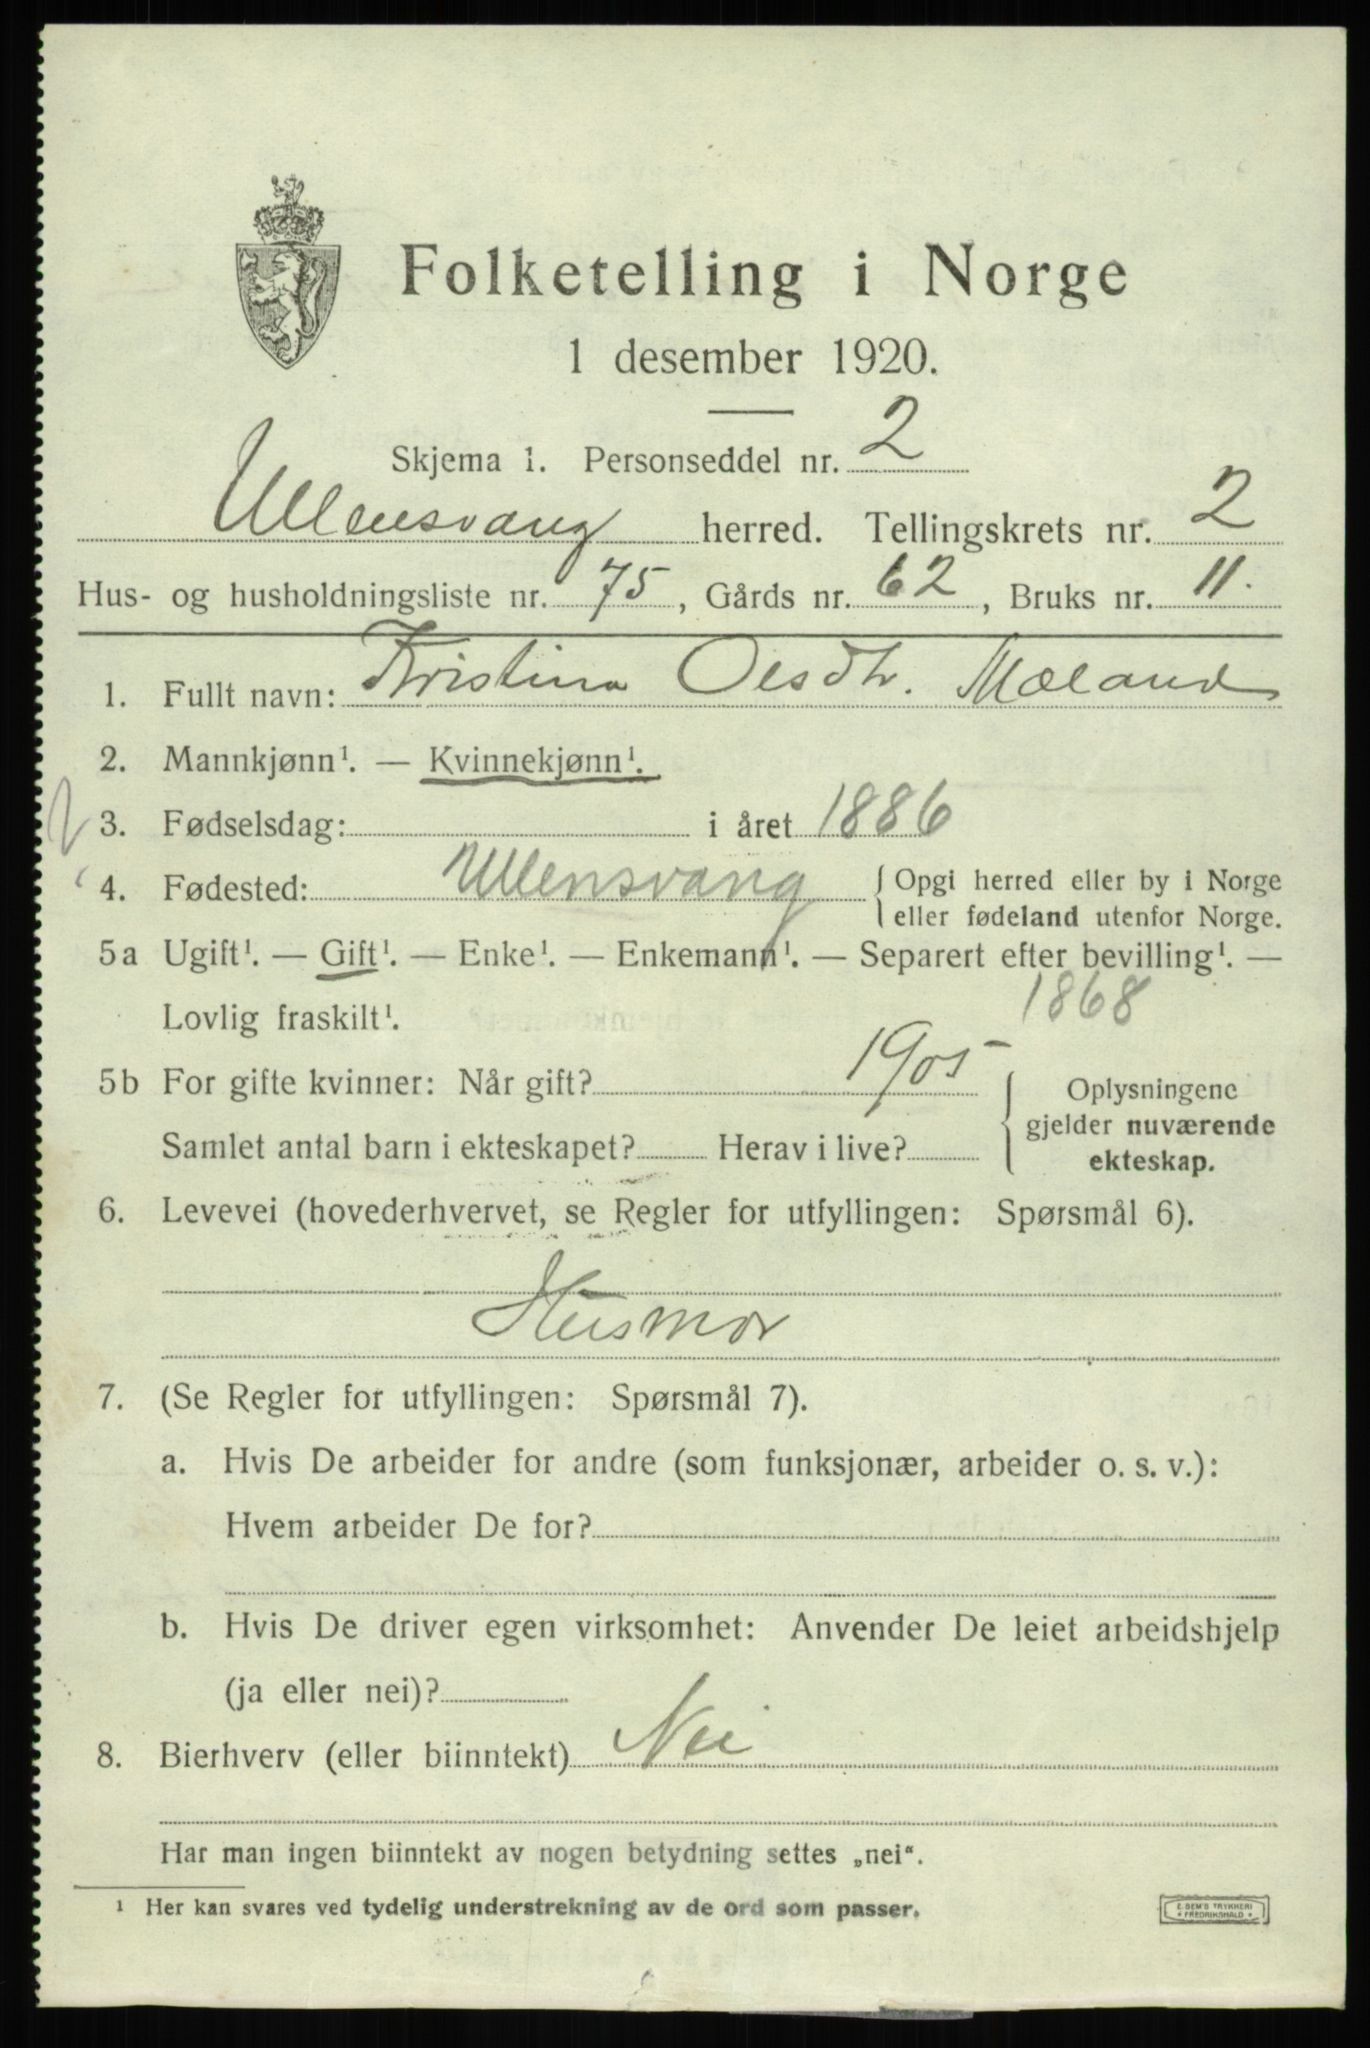 Folketelling i Norge
1 desember 1920.
Skjema 1. Personseddel nr. 2
Ullensvang herred. Tellingskrets nr. 2
Hus- og husholdningsliste nr. 75, Gårds nr. 62, Bruks nr. 11.
1. Fullt navn: Kristina Olsdtr. Mæland
2. Mannkjønn¹. — Kvinnekjønn¹.
3. Fødselsdag: i året 1886
4. Fødested: Ullensvang {Opgi herred eller by i Norge
eller fødeland utenfor Norge.
5a Ugift¹. — Gift¹. — Enke¹. — Enkemann¹. — Separert efter bevilling¹. —
Lovlig fraskilt¹. 1868
5b For gifte kvinner: Når gift? 1905
Samlet antal barn i ekteskapet? Herav i live?
{Oplysningene
gjelder nuværende
ekteskap.
6. Levevei (hovederhvervet, se Regler for utfyllingen: Spørsmål 6).
Husmor
7. (Se Regler for utfyllingen: Spørsmål 7).
a. Hvis De arbeider for andre (som funksjonær, arbeider o. s. v.):
Hvem arbeider De for?
b. Hvis De driver egen virksomhet: Anvender De leiet arbeidshjelp
(ja eller nei)?
8. Bierhverv (eller biinntekt) Nei
Har man ingen biinntekt av nogen betydning settes „nei“.
¹ Her kan svares ved tydelig understrekning av de ord som passer.
E. SEM'S TRYKKERI
* FREDRIKSHALD *